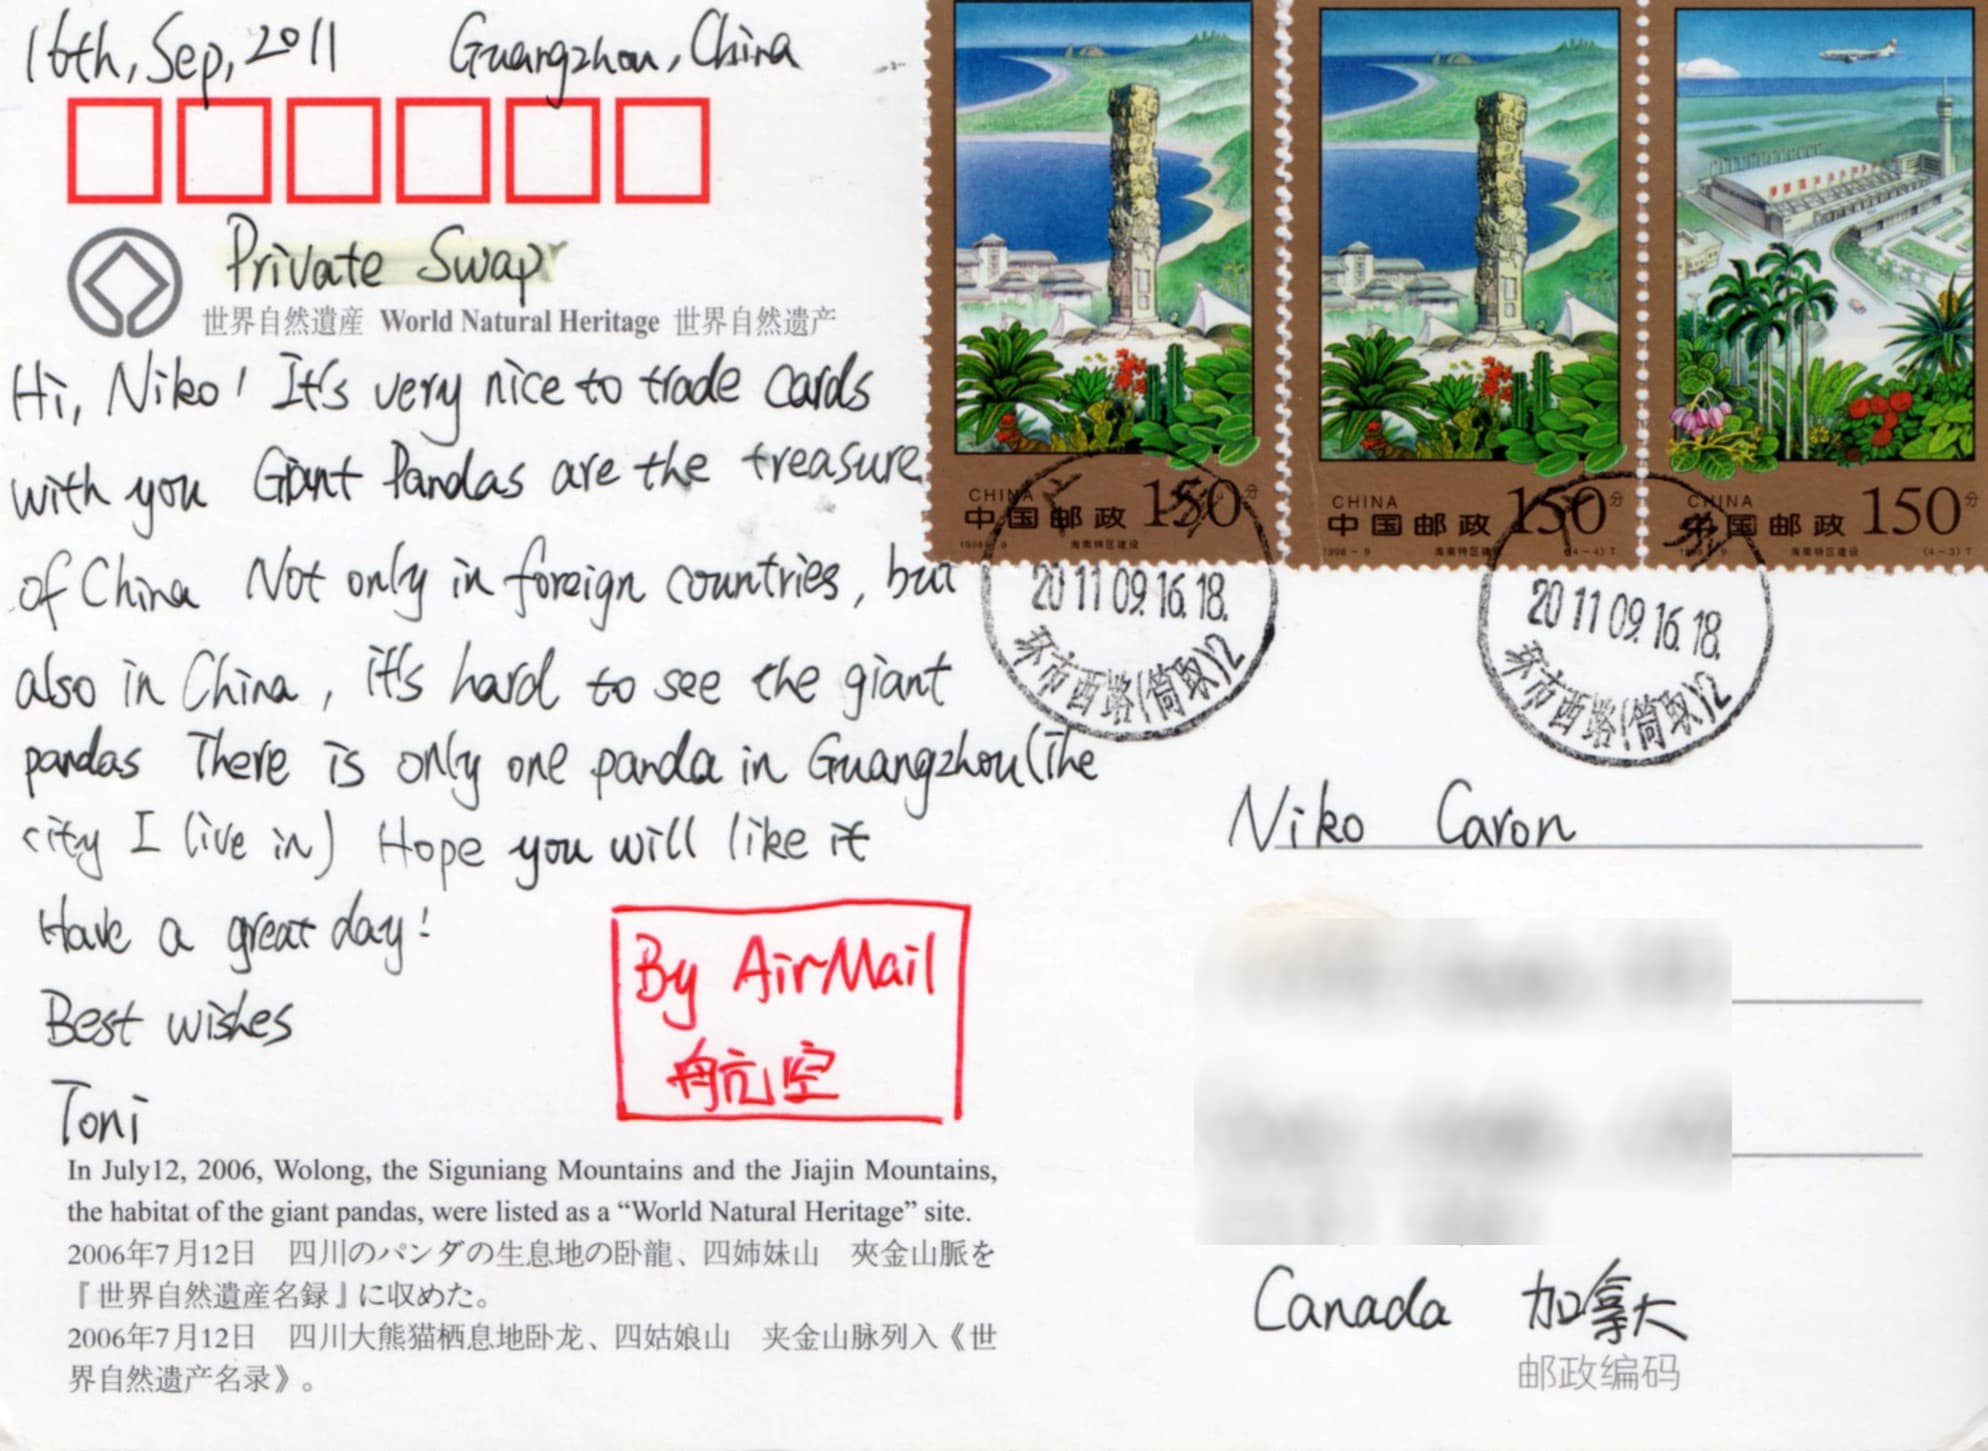 16th, Sep, 2011 Guangzhou, China
Private Swap
世界自然遺産 World Natural Heritage 世界自然遗产
Hi, Niko! It's very nice to trade cards
with you Giant Pandas are the treasure
of China Not only in foreign countries, but
also in China, it's hard to see the giant
pandas There is only one panda in Guangzhou (the
city I live in) Hope you will like it
Have a great day!
Best wishes
Toni
By AirMail
航空
In July12, 2006, Wolong, the Siguniang Mountains and the Jiajin Mountains,
the habitat of the giant pandas, were listed as a “World Natural Heritage” site.
2006年7月12日 四川のパンダの生息地の卧龍、四姉妹山 夾金山脈を
『世界自然遺産名録』に収めた。
2006年7月12日 四川大熊猫栖息地卧龙、四姑娘山 夹金山脉列入《世
界自然遗产名录》。
CHINA
中国邮政 150分
1998-9 海南特区建设
CHINA
中国邮政 150分
1998-9 海南特区建设 (4-4)T
CHINA
中国邮政 150分
海南特区建设 (4-3)T
2011 09.16.18.
环市西路(筒取)2
2011 09.16.18.
环市西路(筒取)2
Niko Caron
Canada 加拿大
邮政编码